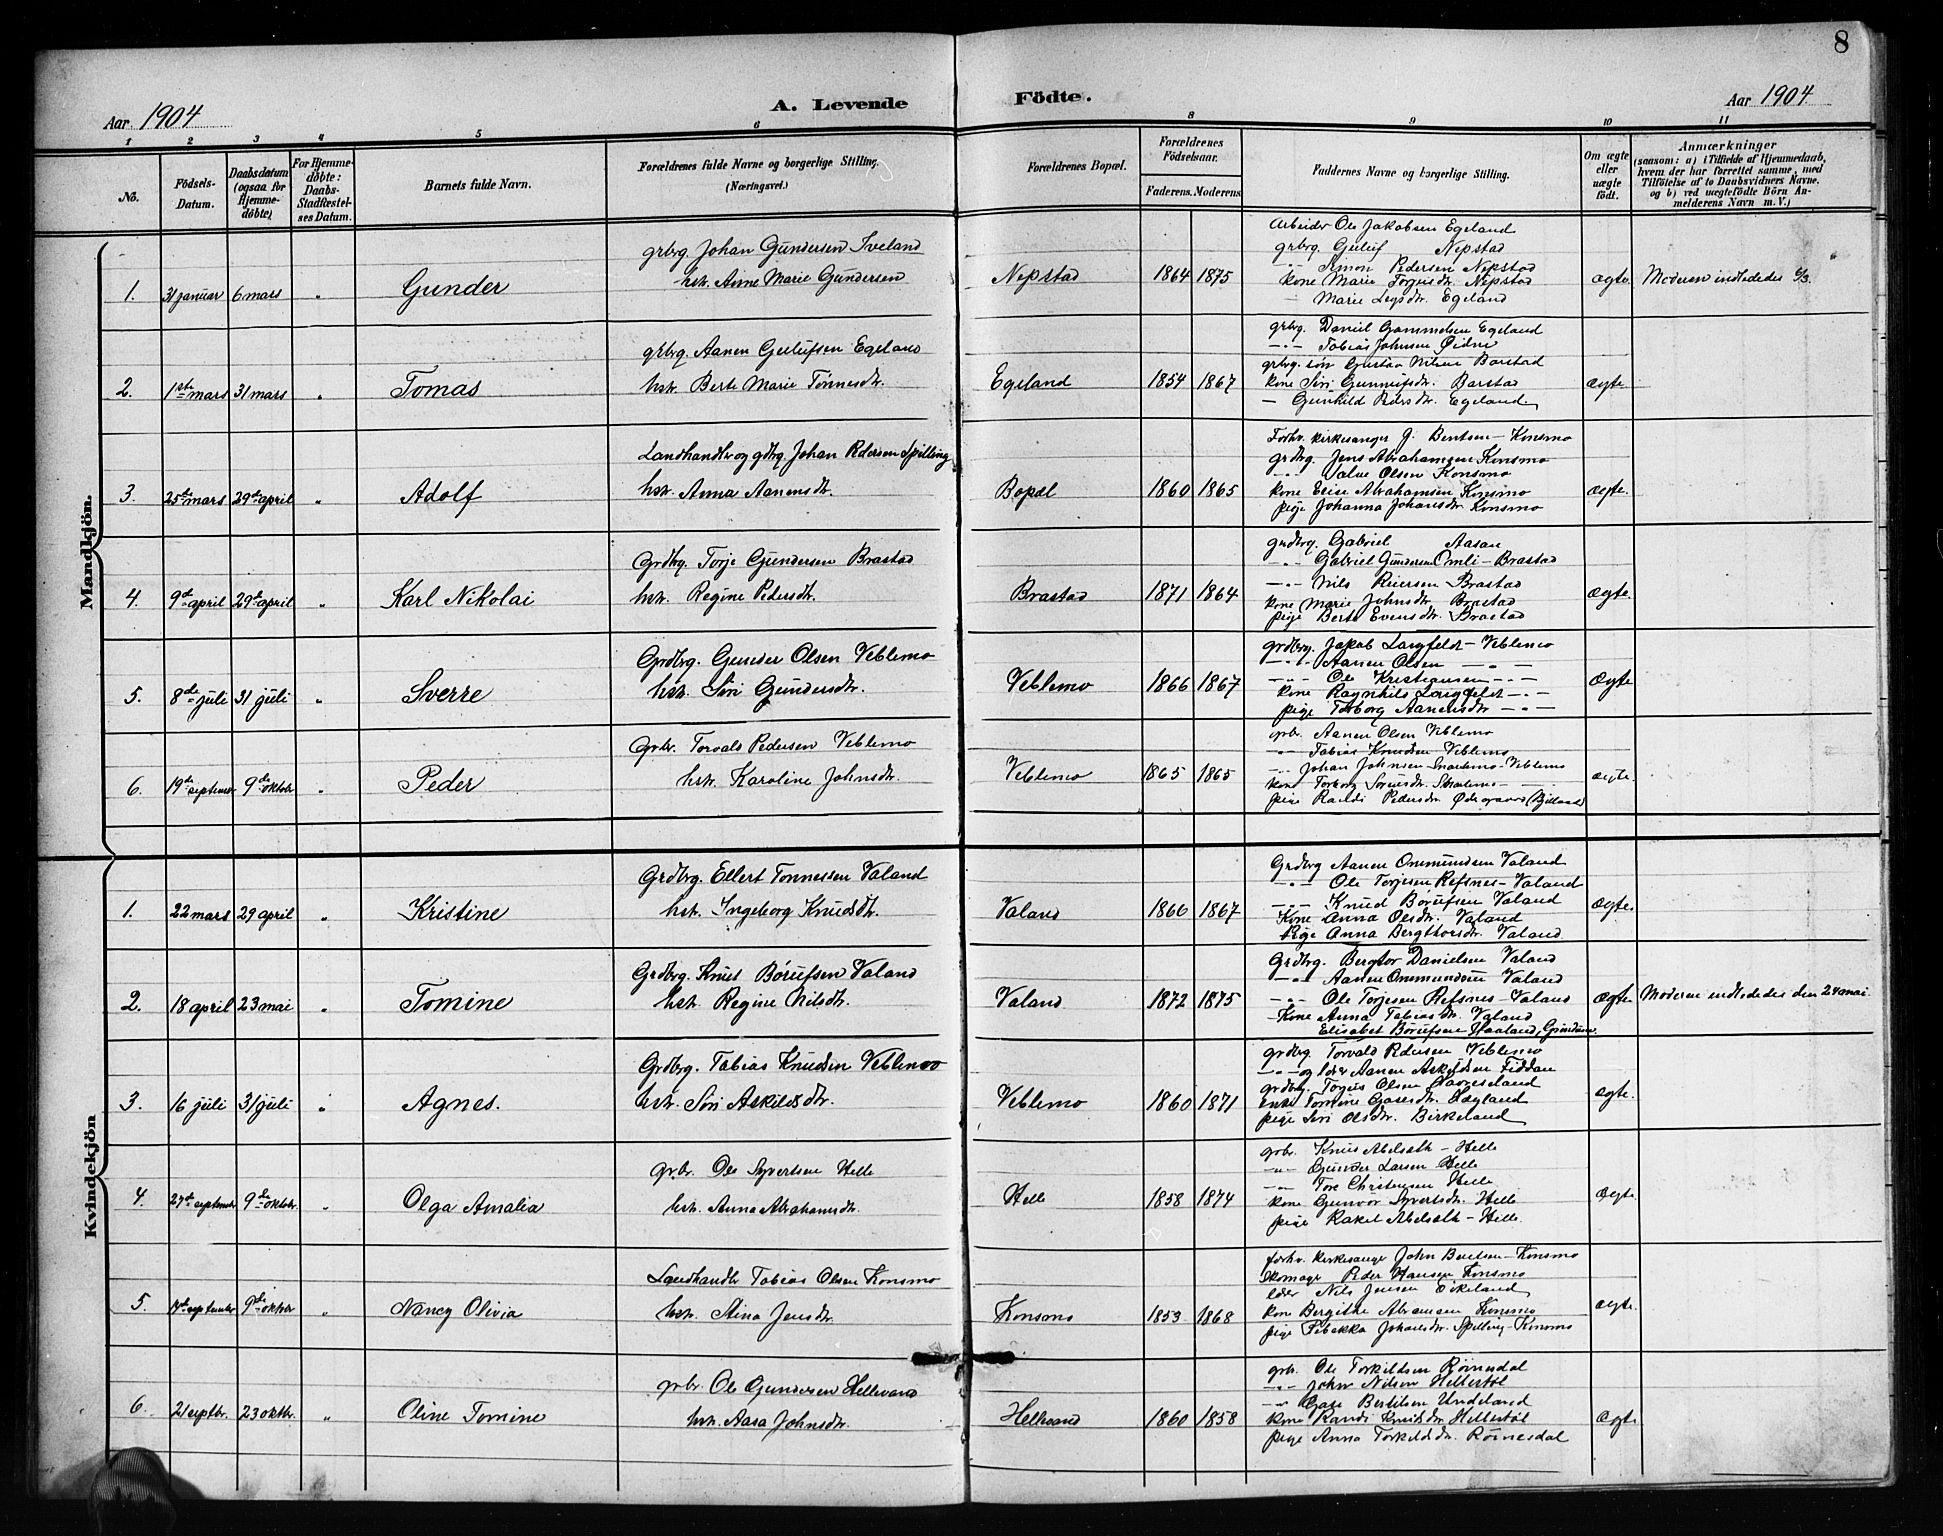 8
Aar 1904
A. Levende Födte.
Aar 1904.
1 2 3 4 5 6 8 9 10 11
No.
Födsels-Datum.
Daabsdatum (ogsaa for Hjemme-döbte)
For Hjemme-döbte: Daabs-Stadfæstel-ses Datum.
Barnets fulde Navn.
Forældrenes fulde Navne og borgerlige Stilling. (Næringsvei.)
Forældrenes Bopæl.
Forældrenes Födselsaar.
Faderens. Moderens.
Faddernes Navne og borgerlige Stilling.
Om ægte eller uægte födt.
Anmærkninger
(saasom: a) i Tilfælde af Hjemmedaab,
hvem der har forrettet samme, med
Tilföielse af to Daabsvidners Navne.
og b) ved uægtefödte Börn An-
melderens Navn m. V.)
Mandkjön.
1. 31 januar 6 mars " Gunder
grbrg. Johan Gundersen Iveland
hstr. Anne Marie Gundersen
Nepstad 1864 1875
Arbeider Ole Jakobsen Egeland
grbrg. Nepstad
-"- Simon Pedersen Nepstad
kone Marie Nepstad
- Marie Egeland
ægte. Moderen indlededes 6/3.
2. 1ste mars 31 mars " Tomas
grbrg. Aanen Egeland
hstr. Berte Marie Tønnesdtr.
Egeland 1854 1867
grbrg. Daniel Gammelsen Egeland
-"- Tobias Johnsen
grbrg. søn Gustav Nilsen Barstad
kone Siri Barstad
- Gunhild Pedersdtr. Egeland.
ægte.
3. 25de mars 29de april " Adolf
Landhandler og gdbrg. Johan Pedersen Spilling
hstr. Anna Aanensdtr.
Bopæl 1860 1865
Forhv. kirkesanger J. Bentsen - Konsmo
grdbrg. Jens Abrahamsen Konsmo
-"- Olsen Konsmo
kone Elise Abrahamsen Konsmo
pige Johanna Johansdtr. Konsmo
ægte.
4. 9de april 29de april " Karl Nikolai
Grdbrg. Torje Gundersen Brastad
hstr. Regine Pedersdtr.
Brastad 1871 1864
grdbrg. Gabriel Aasen
-"- Gabriel Gundersen Omli - Brastad
-"- Nils Reiersen Brastad
kone Marie Johnsdtr. Brastad
pige Berte Evensdtr. Brastad
ægte.
5. 8de juli 31 juli " Sverre
Grdbrg. Gunder Olsen Veblemo
hstr. Siri Gundersdtr.
Veblemo 1866 1867
grdbrg. Jakob Langfeldt - Veblemo
-"- Aanen Olsen -"-
-"- Ole Kristiansen -"-
kone Ragnhild Langfeldt -"-
pige Torborg Aanensdtr -"-
ægte
6. 19de september 9de oktobr "
Peder
Grbr. Torvald Pedersen Veblemo
hstr. Karoline Johnsdtr.
Veblemo 1865 1865
grbr. Aanen Olsen Veblemo
-"- Tobias Knudsen Veblemo
-"- Johan Johnsen - Veblemo
kone Torborg
pige Randi Pedersdtr. Ødegaard (Bjelland)
ægte.
Kvindekjön
1. 22 mars 29 april " Kristine
Grdbrg. Ellert Tønnessen Valand
hstr. Ingeborg Knudsdtr.
Valand 1866 1867
Grdbrg Aanen Onmundsen Valand
-"- Ole Torjesen Refsnes - Valand
-"- Knud Børufsen Valand
Kone Anna Olsdtr. Valand
Pige Anna Bergthorsdtr. Valand
ægte.
2. 18 april 23 mai " Tomine
Grdbrg. Knut Børufsen Valand
hstr. Regine Nilsdtr.
Valand 1872 1875
Grdbrg. Bergtor Danielsen Valand
-"- Aanen Onmundsen Valand
-"- Ole Torjesen Refsnes - Valand
Kone Anna Tobiasdtr. Valand
Elisabet Børufsen Haaland,
ægte. Moderen indlededes den 24 mai
3. 16 juli 31 juli " Agnes.
Grdbrg. Tobias Knudsen Veblemo
hstr. Siri Askildsdtr.
Veblemo 1860 1871
grdbrg Torvald Pedersen Veblemo
-"- og lder Aanen Askildsen Fiddan
grdbrg. Olsen
enke Tomine
pige Siri Olsdtr. Birkeland
ægte.
4. 27de september 9de oktobr. " Olga Amalia
grbr. Ole Syvertsen Helle
hstr. Anna Abrahamsdtr.
Helle 1858 1874
grbr. Knud Abelseth - Helle
-"- Gunder Larsen Helle
-"- Tore Christensen Helle
kone Gunvor Syvertsdtr. Helle
pige Rakel Abelseth - Helle
ægte.
5. september 9de oktobr " Nancy Olivia
Landhandler Tobias Olsen Konsmo
hstr. Stina Jensdtr.
Konsmo 1853 1868
forhv. kirkesanger John Bentsen - Konsmo
skomager Peder Hansen Konsmo
lder Nils Jensen Eikeland
kone Bergithe Abramsen Konsmo
pige Johansdtr. Spilling - Konsmo
ægte.
6. 21 septbr. 23 oktbr. " Oline Tomine
grbr. Ole Gundersen Hellevand
hstr. Aasa Johnsdtr.
Hellvand 1860 1858
grbr. Ole Torkildsen Røinesdal
-"- John Nilsen
-"- Gase Bertilsen Undeland
kone Randi Knudsdtr
pige Anna Torkildsdtr. Røinesdal
ægte.